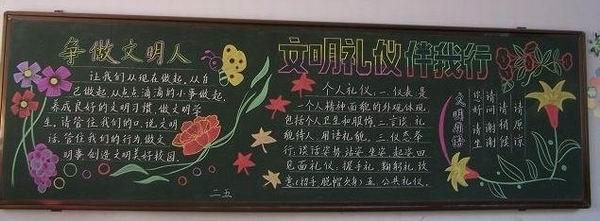 争做文明人
让我们从现在做起,从自
己做起,从点点滴滴的小事做起,
养成良好的文明习惯,做文明学
生,请管住我们的口,说文明
话,管住我们的行为,做文
明事,创造文明美好校园。
二五
文明礼仪伴我行
个人礼仪,一、仪表是
一个人精神面貌的外观体现,
包括个人卫生和服饰。二、言谈、礼
貌待人、用语礼貌。三、仪态举
行:谈话姿势、站姿、坐姿、起姿四
见面礼仪:握手礼、鞠躬礼、致
意(招手、脱帽、欠身)五、公共礼仪.
文明用语
您好 请坐
请问 谢谢
请 稍候
请原谅